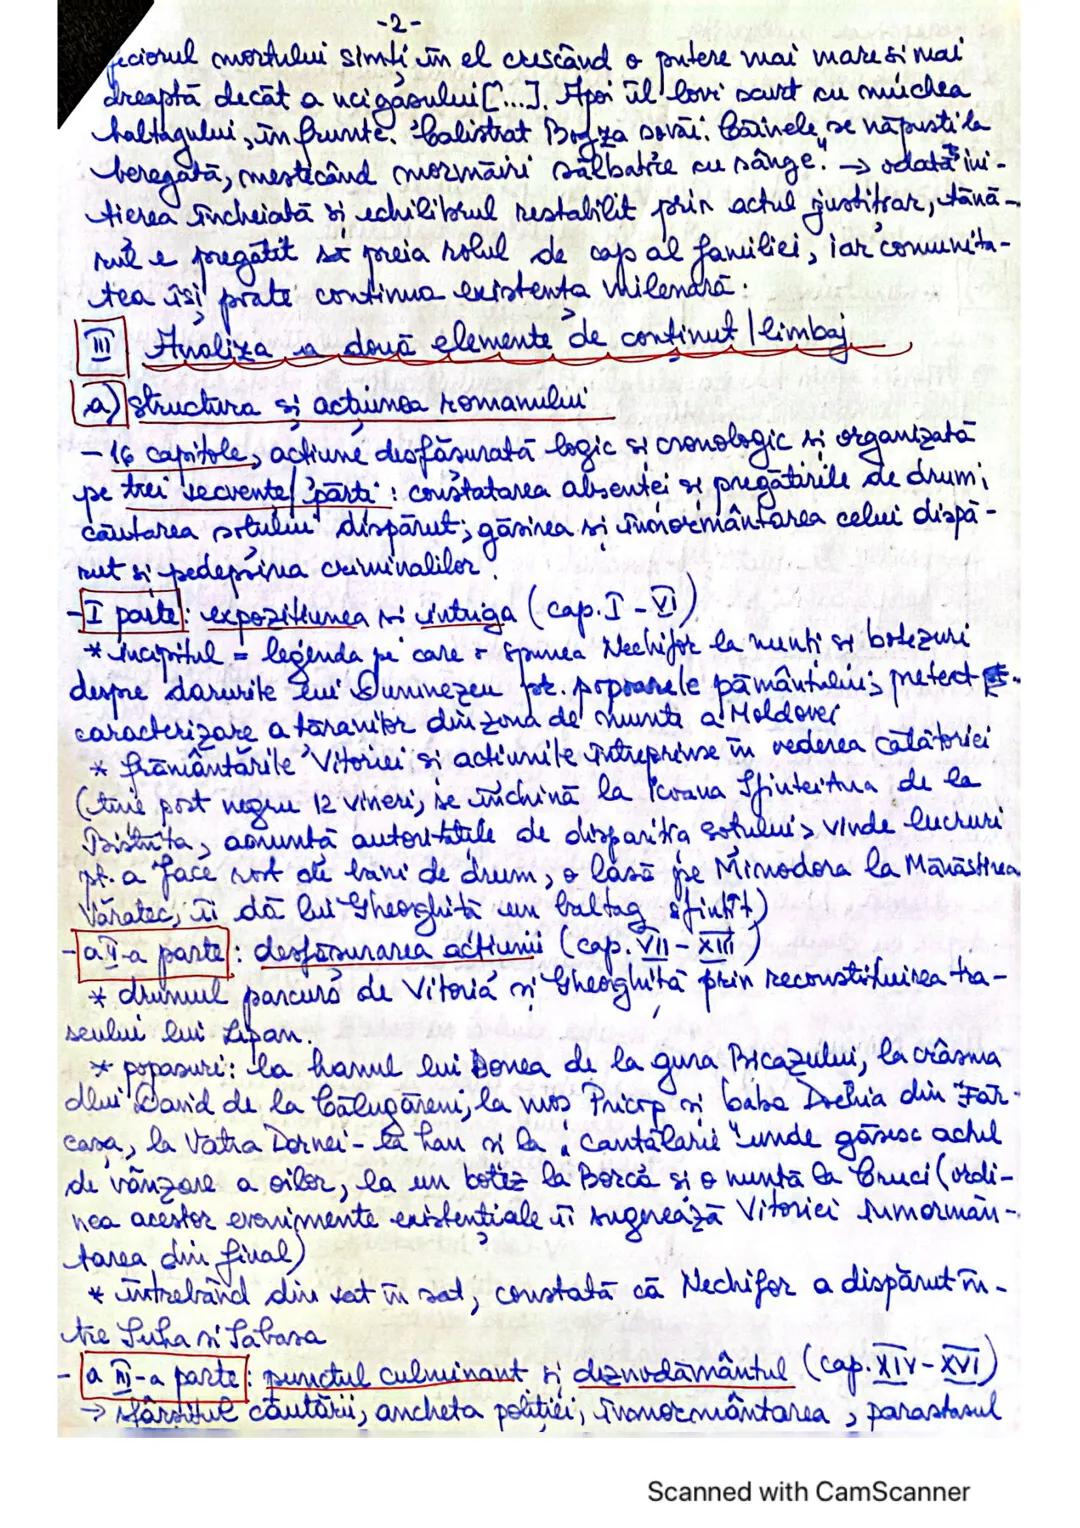 -2-
feciorul mortului simți în el crescând o putere mai mare și mai
dreaptă decât a ucigașului [...]. Apoi îl lovi scurt cu muchea
baltagului, în frunte. Calistrat Bogza șovăi. Câinele se năpusti la
beregată, mestecând mormăiri sălbatice cu sânge." → odată ini-
țierea încheiată și echilibrul restabilit prin actul justițiar, tână-
rul e pregătit să preia rolul de cap al familiei, iar comunita-
tea își poate continua existența milenară.
III Analiza a două elemente de conținut / limbaj
a) Structura și acțiunea romanului
- 16 capitole, acțiune desfășurată logic și cronologic și organizată
pe trei secvențe / părți: constatarea absenței și pregătirile de drum;
căutarea soțului dispărut; găsirea și înmormântarea celui dispă-
rut și pedepsirea criminalilor.
- I parte: expozițiunea și intriga (cap. I - VI)
* incipitul = legenda pe care o spunea Nechifor la nunți și botezuri
despre darurile lui Dumnezeu pt. popoarele pământului; pretext
caracterizare a țăranilor din zona de munte a Moldovei
* frământările Vitoriei și acțiunile întreprinse în vederea călătoriei
(ține post negru 12 vineri, se închină la Icoana Sfintei Ana de la
Bistrița, anunță autoritățile de dispariția soțului, vinde lucruri
pt. a face rost de bani de drum, o lasă pe Minodora la Mănăstirea
Văratec, îi dă lui Gheorghiță un baltag sfințit)
- a II-a parte: desfășurarea acțiunii (cap. VII - XIII)
* drumul parcurs de Vitoria și Gheorghiță prin reconstituirea tra-
seului lui Lipan.
* popasuri: la hanul lui Donea de la gura Bicazului, la crâșma
dlui David de la Călugăreni, la moș Pricop și baba Dochia din Făr-
cașa, la Vatra Dornei - la han și la "cantălarie" unde găsesc actul
de vânzare a oilor, la un botez la Borca și o nuntă la Cruci (ordi-
nea acestor evenimente existențiale îi sugerează Vitoriei înmormân-
tarea din final)
* întrebând din sat în sat, constată că Nechifor a dispărut în-
tre Suha și Sabasa
- a III-a parte: punctul culminant și deznodământul (cap. XIV - XVI)
→ sfârșitul căutării, ancheta poliției, înmormântarea, parastasul
Scanned with CamScanner